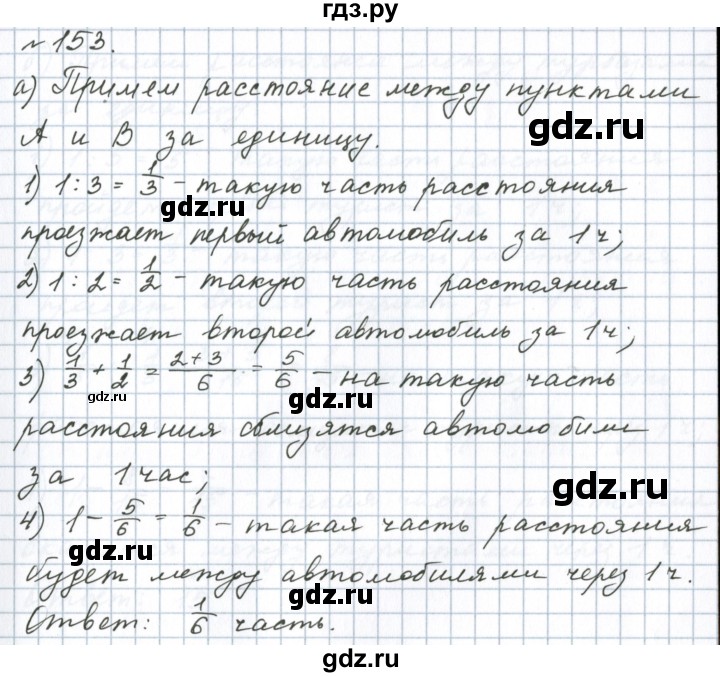 гдз.ру
№ 153.
а) Примем расстояние между пунктами
А и В за единицу.
gdz.ru
1) 1 : 3 = 1/3 – такую часть расстояния
gdz.ru
проезжает первый автомобиль за 1 ч;
gdz.ru
2) 1 : 2 = 1/2 – такую часть расстояния
проезжает второй автомобиль за 1 ч;
3) 1/3 + 1/2 = 2+3/6 = 5/6 – на такую часть
gdz.ru
gdz.ru
расстояния сблизятся автомобили
за 1 час;
gdz.ru
4) 1 – 5/6 = 1/6 – такая часть расстояния
gdz.ru
будет между автомобилями через 1 ч.
Ответ: 1/6 часть.
gdz.ru